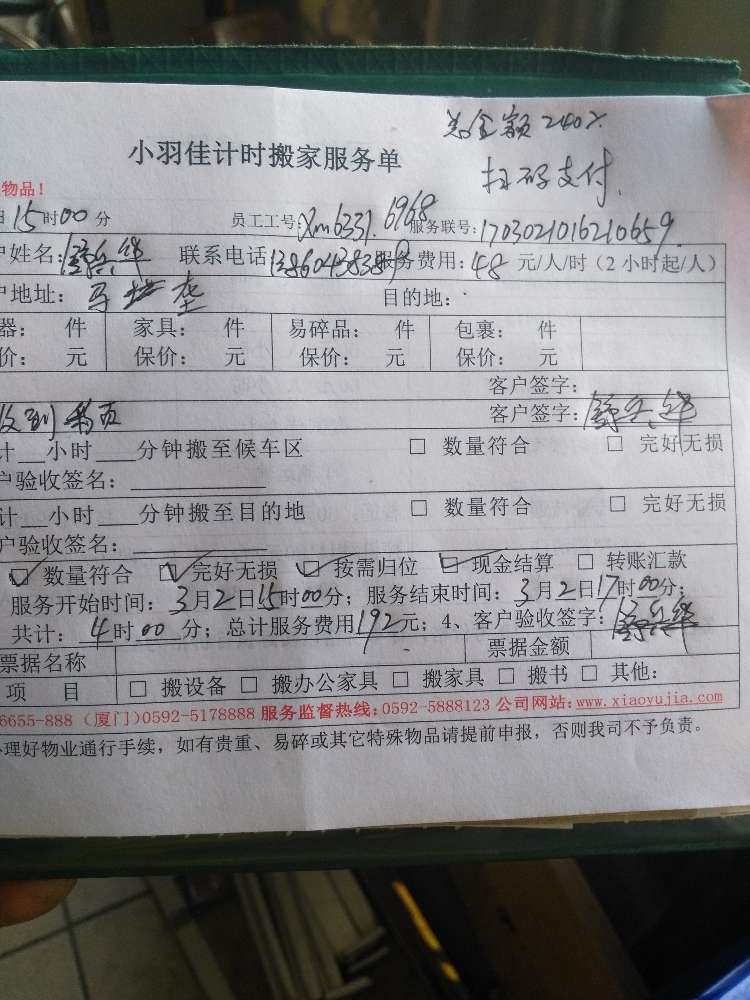 总金额240元
扫码支付.
小羽佳计时搬家服务单
物品！
15时00分 员工工号:Xm6331.6968 服务联号:1703021016210659.
户姓名: 联系电话 服务费用:48元/人/时（2小时起/人）
户地址: 目的地:
器: 件 家具: 件 易碎品: 件 包裹: 件
价: 元 保价: 元 保价: 元 保价: 元
客户签字:
收到 客户签字:
计__小时___分钟搬至候车区 □ 数量符合 □ 完好无损
户验收签名:
计__小时___分钟搬至目的地 □ 数量符合 □ 完好无损
户验收签名:
☑ 数量符合 ☑ 完好无损 ☑ 按需归位 ☑ 现金结算 □ 转账汇款
服务开始时间: 3月2日15时00分; 服务结束时间: 3月2日17时00分;
共计: 4时00分; 总计服务费用192元; 4、客户验收签字:
票据名称 票据金额
项 目 □ 搬设备 □ 搬办公家具 □ 搬家具 □ 搬书 □ 其他:
6655-888（厦门）0592-5178888 服务监督热线:0592-5888123 公司网站:www.xiaoyujia.com
理好物业通行手续，如有贵重、易碎或其它特殊物品请提前申报，否则我司不予负责。